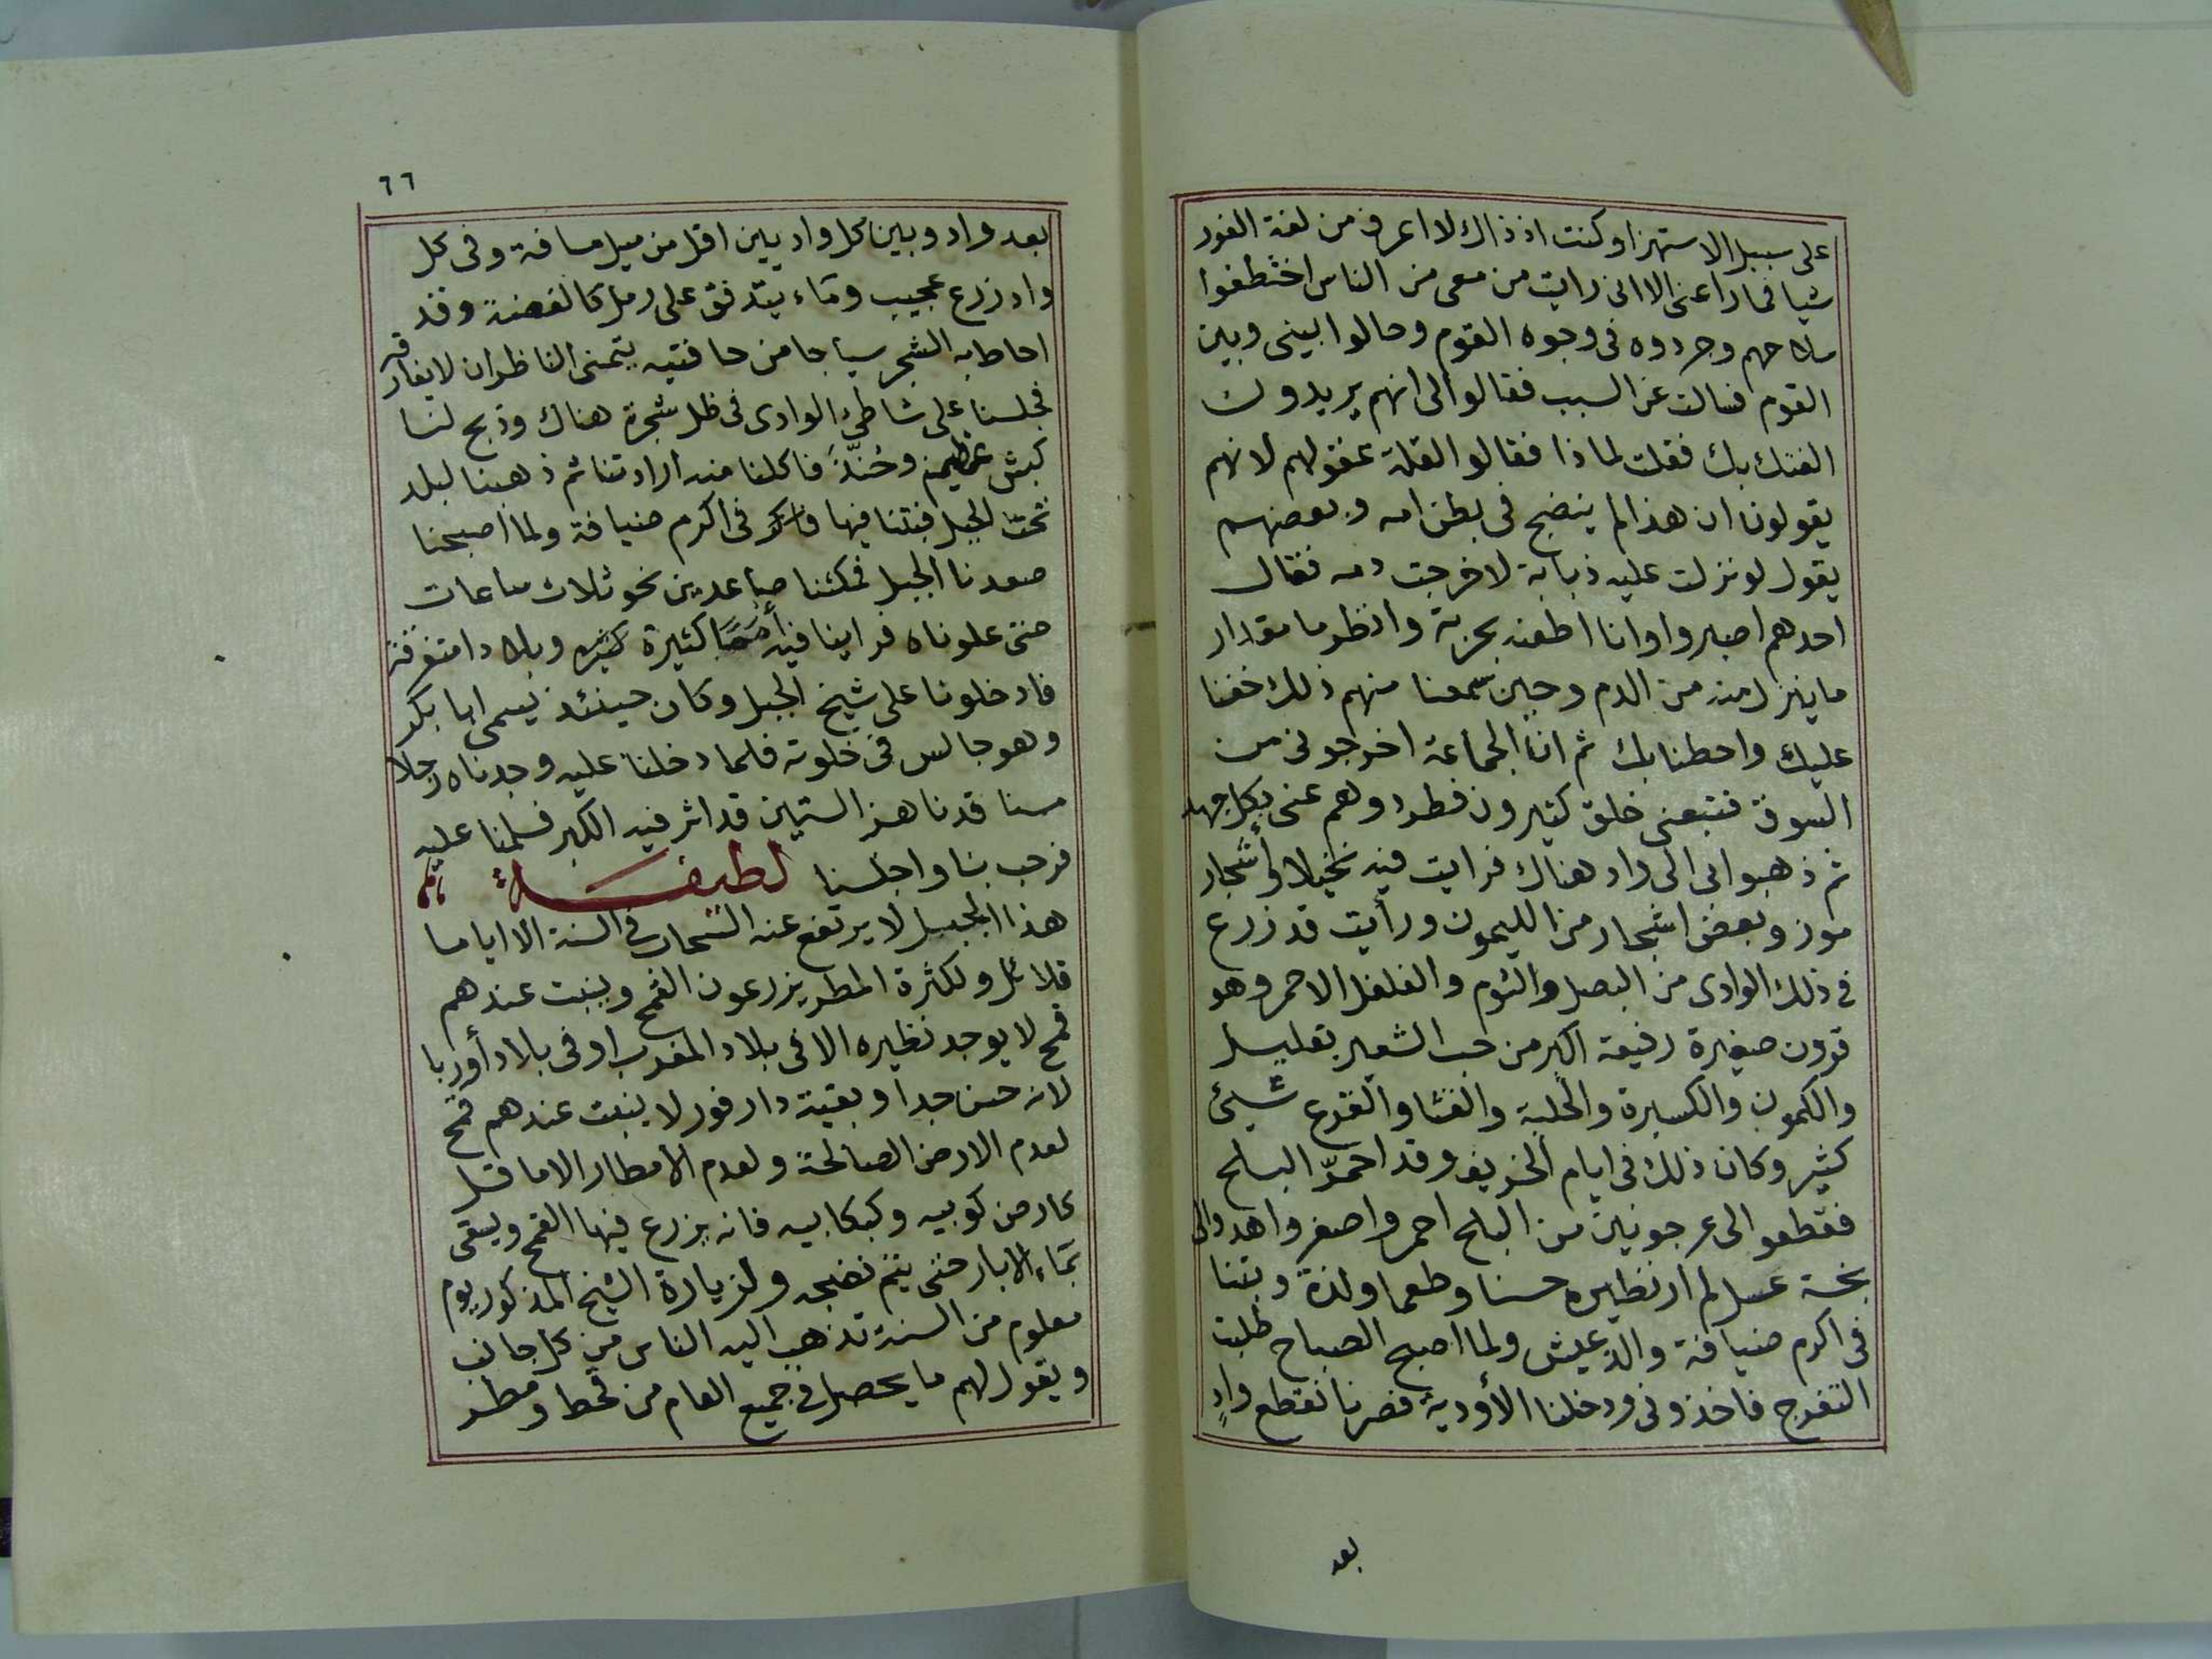 على سبيل الاستهزا وكنت اذ ذاك لا اعرف من لغة الفور
شيا فما راعنى الا انى رايت من معى من الناس اختطفوا
سلاحهم وجردوه فى وجوه القوم وحالوا بينى وبين
القوم فسالت عن السبب فقالوا لى انهم يريدون
الفتك بك فقلت لماذا فقالوا لقلة عقولهم لانهم
يقولون ان هذا لم ينضج فى بطن امه وبعضهم
يقول لو نزلت عليه ذبابة لاخرجت دمه فقال
احدهم اصبروا وانا اطعنه بحربة وانظروا مقدار
ما ينزل منه من الدم وحين سمعنا منهم ذلك خفنا
عليك واحطنا بك ثم ان الجماعة اخرجونى من
السوق فتبعنى خلق كثيرون فطردوهم عنى بكل جهد
ثم ذهبوا بى الى واد هناك فرايت فيه نخيلا وأشجار
موز وبعض اشجار من الليمون ورأيت قد زرع
فى ذلك الوادى من البصل والثوم والفلفل الاحمر وهو
قرون صغيرة رفيعة اكبر من حب الشعير بقليل
والكمون والكسبرة والحلبة والقثا والقرع شيئ
كثير وكان ذلك فى ايام الخريف وقد احمرّ البلح
فقطعوا لى عرجونين من البلح احمر واصفر واهدوا لى
بخسة عسل لم ار نظيره حسنا وطعما ولذة وبتنا
فى اكرم ضيافة والذ عيش ولما اصبح الصباح طلبت
التفرج فاخذونى ودخلنا الأودية فصرنا نقطع وادٍ
بعد
٦٦
بعد واد وبين كل واديين اقل من ميل مسافة وفى كل
واد زرع عجيب وماء يتدفق على رمل كالفضة وقد
احاط به الشجر سياجا من حافتيه يتمنى الناظر ان لا يفارقه
فجلسنا على شاطئ الوادى فى ظل شجرة هناك وذبح لنا
كبش عظيم وحُنِّذَ فاكلنا منه ارادتنا ثم ذهبنا لبلد
تحت الجبل فبتنا فيها فى اكرم ضيافة ولما اصبحنا
صعدنا الجبل فمكثنا صاعدين نحو ثلاث ساعات
حتى علوناه فراينا فيه أمما كثيرة وبلادا متفرقة
فادخلونا على شيخ الجبل وكان حينئذ يسمى ابا بكر
وهو جالس فى خلوته فلما دخلنا عليه وجدناه رجلا
مسنا قد ناهز الستين قد اثر فيه الكبر فسلمنا عليه
فرحب بنا واجلسنا لطيفة
هذا الجبل لا يرتفع عنه السحاب فى السنة الا اياما
قلائل ولكثرة المطر يزرعون القمح وينبت عندهم
قمح لا يوجد نظيره الا فى بلاد المغرب او فى بلاد أوربا
لانه حسن جدا وبقية دارفور لا ينبت عندهم قمح
لعدم الارض الصالحة ولعدم الامطار الا ما قل
كارض كوبيه وكبكابيه فانه يزرع فيها القمح ويسقى
بماء الابار حتى يتم نضجه ولزيارة الشيخ المذكور يوم
معلوم من السنة تذهب اليه الناس من كل جانب
ويقول لهم ما يحصل فى جميع العام من قحط ومطر